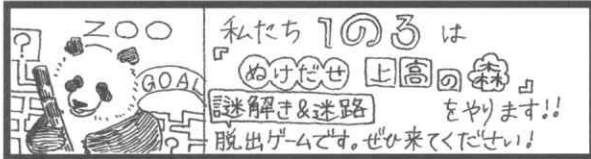 ZOO
?
GOAL
私たち 1の3 は
『ぬけだせ 上高の森』
謎解き&迷路 をやります!!
脱出ゲームです。ぜひ来てください!